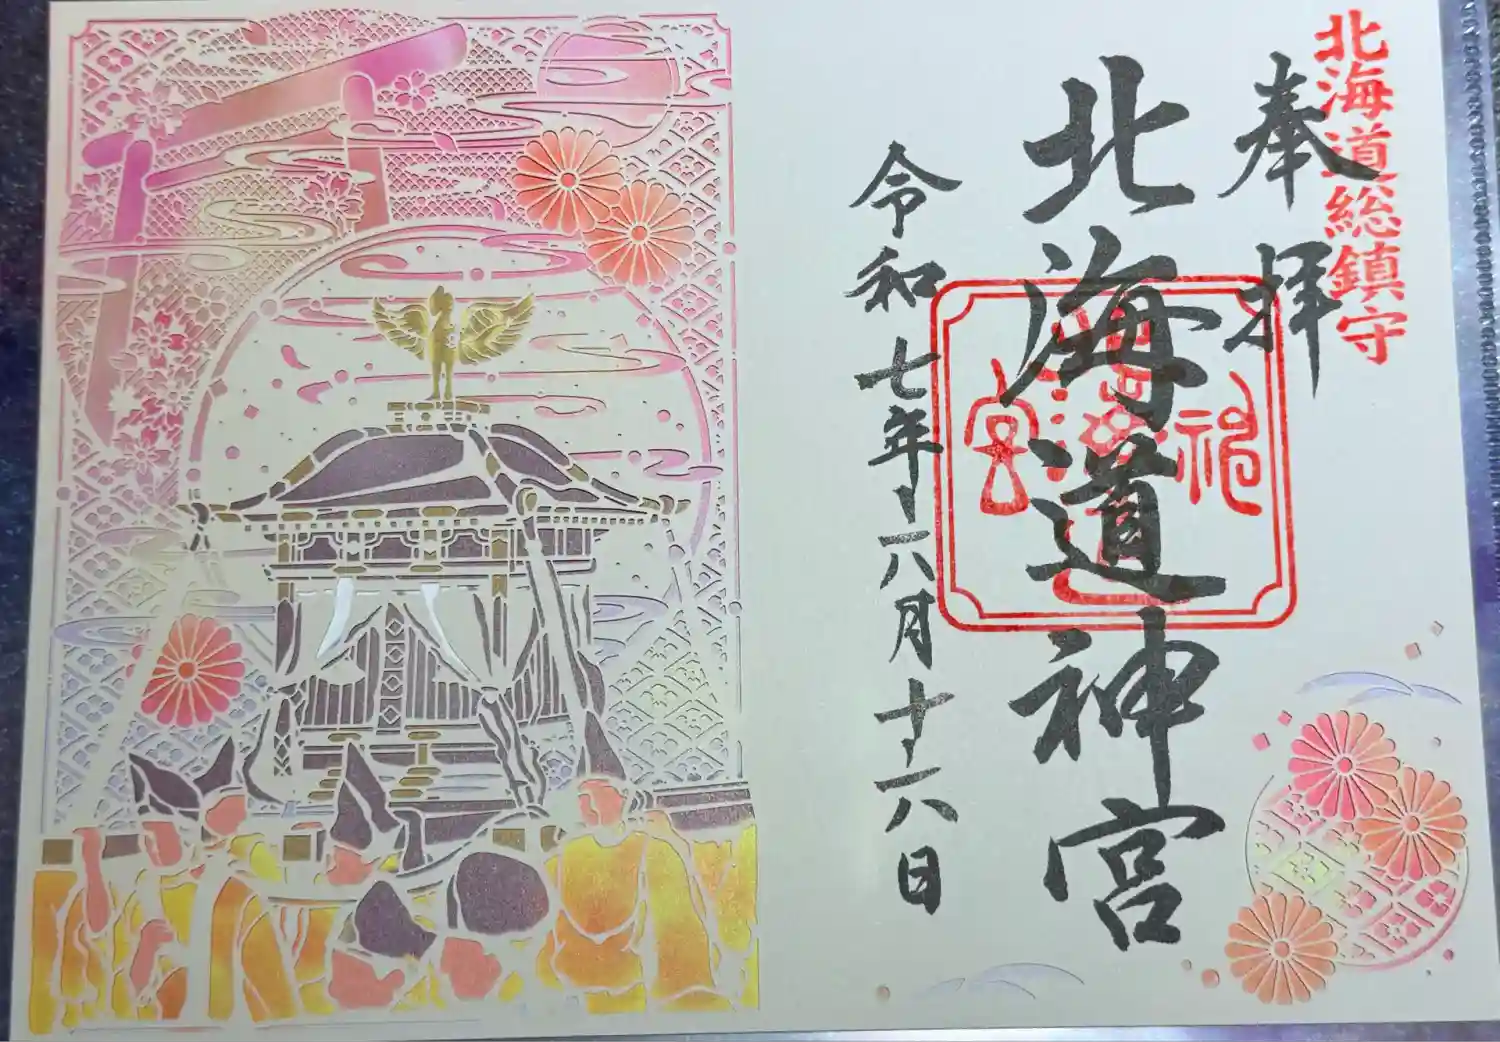 北海道総鎮守
奉拝
北海道神宮
令和七年六月十六日